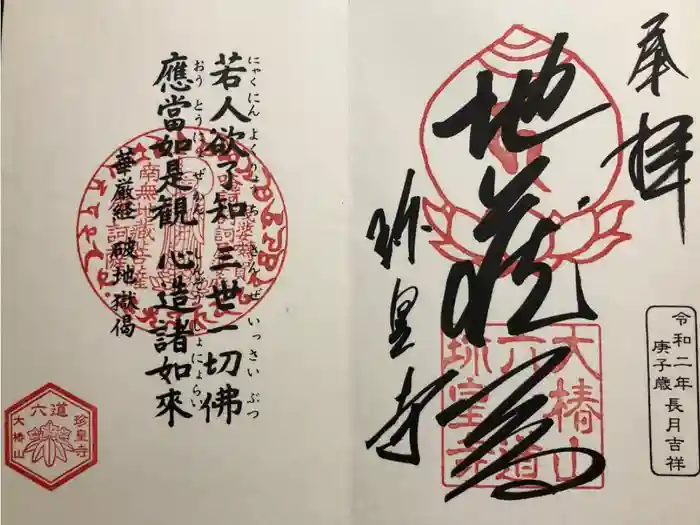 奉拝
地蔵尊
珎皇寺
大椿山
六道
珎皇寺
令和二年
庚子歳 長月吉祥
若人欲了知 三世一切佛
にゃくにん よく さんぜ いっさいぶつ
應當如是観 心造諸如來
おうとう ぜ にょらい
華厳経 破地獄偈
南無地蔵菩薩
六道
珍皇寺
大椿山